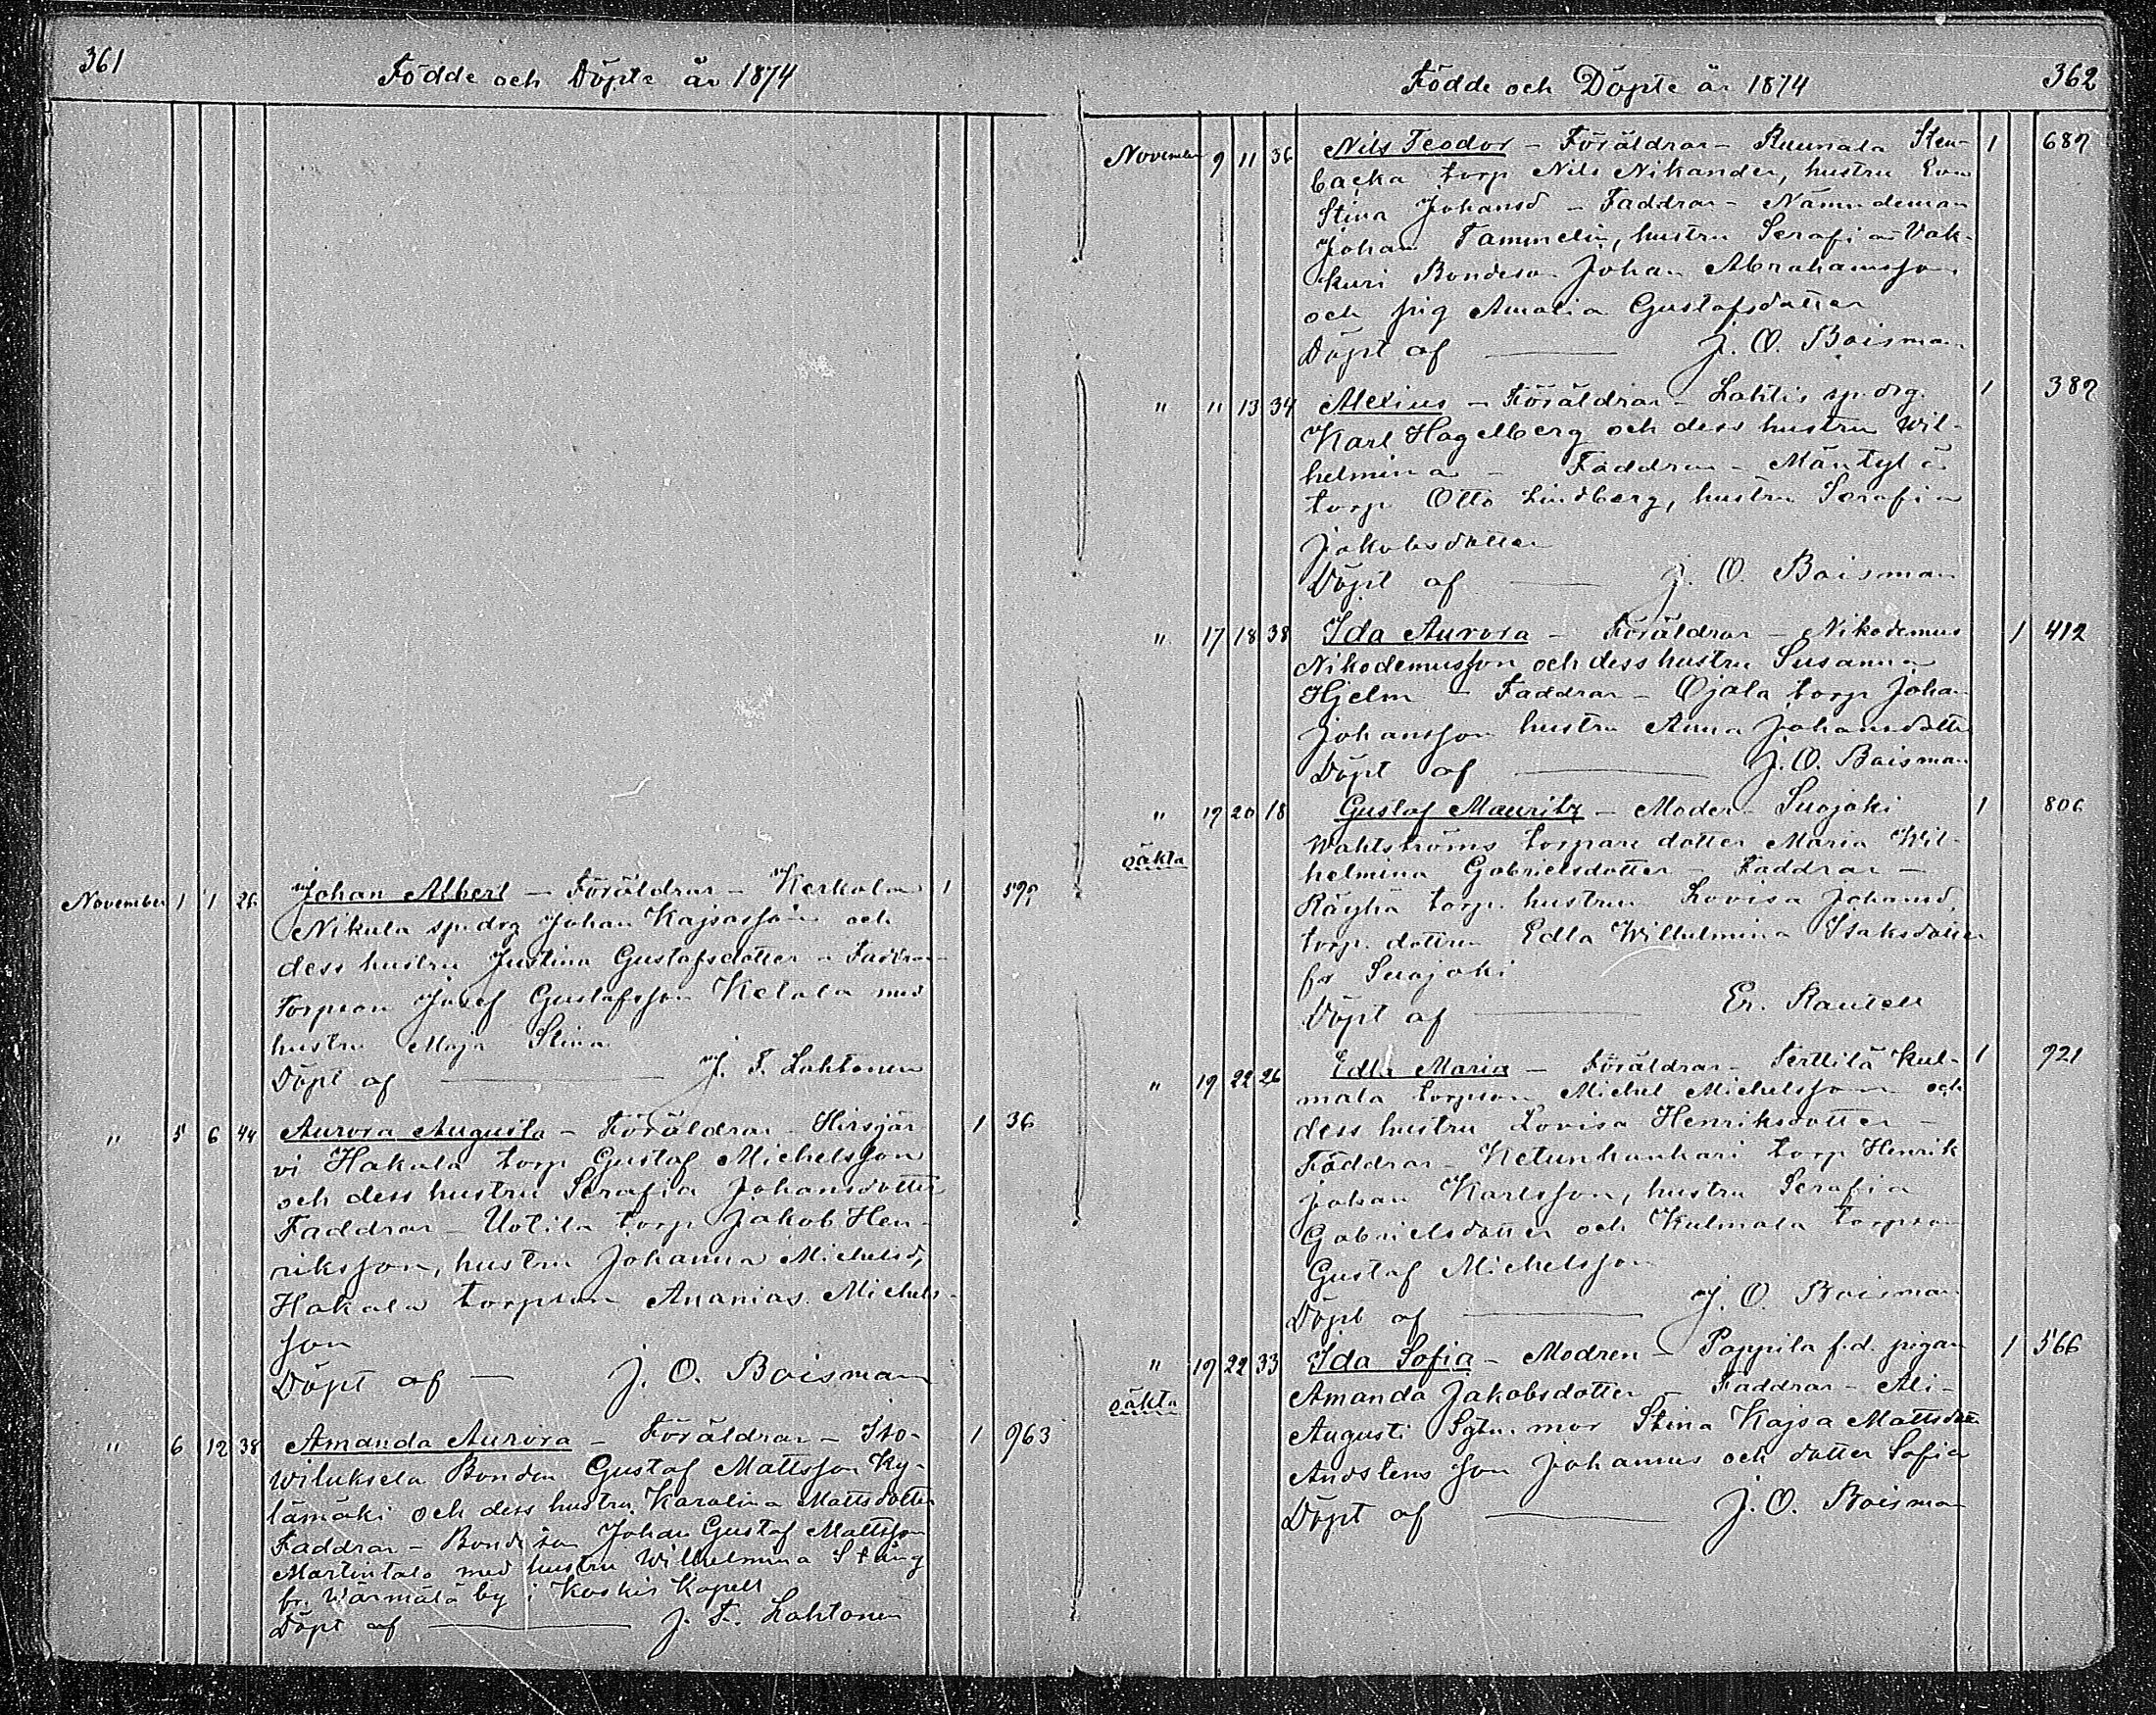 361
Födde och Döpte år 1874
November 1 1 26 Johan Albert – Föräldrar – Kerkola 1 592
Nikula sp.drg Johan Kajsasson och
dess hustru Justina Gustafsdotter – Faddrar –
Torpson Josef Gustafsson Ketola med
hustru Maja Stina
Döpt af — J. F. Lahtonen
" 5 6 44 Aurora Augusta – Föräldrar – Hirsjär- 1 36
vi Hakala torp Gustaf Michelsson
och dess hustru Serafia Johansdotter
Faddrar – Uotila torp Jakob Hen-
riksson, hustru Johanna Michelsd,
Hakala torpson Ananias Michels-
son
Döpt af — J. O. Boisman
" 6 12 38 Amanda Aurora – Föräldrar – Iso- 1 963
wiluksela Bonden Gustaf Mattsson Ky-
lämäki och dess hustru Karolina Mattsdotter
Faddrar – Bondeson Johan Gustaf Mattsson
Martintalo med hustru Wilhelmina Ståhg
fr. Wärmälä by i Koskis Kapell
Döpt af — J. F. Lahtonen
362
Födde och Döpte år 1874
November 9 11 36 Nils Feodor – Föräldrar – Ruunala Sten- 1 687
backa torp Nils Nikander, hustru Eva
Stina Johansd – Faddrar – Nämndeman
Johan Tammelin, hustru Serafia Vak-
kuri Bondeson Johan Abrahamsson
och pig Amalia Gustafsdotter
Döpt af — J. O. Boisman
" 11 13 34 Alexius – Föräldrar – Lahtis sp.drg. 1 387
Karl Hagelberg och dess hustru Wil-
helmina – Faddrar – Mäntylä
torp Otto Lindberg, hustru Serafia
Jakobsdotter
Döpt af — J. O. Boisman
" 17 18 38 Ida Aurora – Föräldrar – Nikodemus 1 412
Nikodemusson och dess hustru Susanna
Hjelm – Faddrar – Ojala torp Johan
Johansson hustru Anna Johansdotter
Döpt af — J. O. Boisman
" 19 20 18 Gustaf Mauritz – Moder – Suojoki 1 806
Wahlströms torpare dotter Maria Wil-
oäkta
helmina Gabrielsdotter – Faddrar –
Räyhä torp. hustrun Lovisa Johansd,
torp. dottren Edla Wilhelmina Isaksdotter
fr Suojoki
Döpt af — Er. Rautell
" 19 22 26 Edla Maria – Föräldrar – Serttilä Kul- 1 921
mala torpson Michel Michelsson och
dess hustru Lovisa Henriksdotter –
Faddrar – Ketunhanhari torp Henrik
Johan Karlsson, hustru Serafia
Gabrielsdotter och Kulmala torpson
Gustaf Michelsson
Döpt af — J. O. Boisman
" 19 22 33 Ida Sofia – Modren – Pappila f.d. pigan 1 566
oäkta
Amanda Jakobsdotter – Faddrar – Ali-
Augusti Sytn. mor Stina Kajsa Mattsdotter
Andstens son Johannes och dotter Sofia
Döpt af — J. O. Boisman